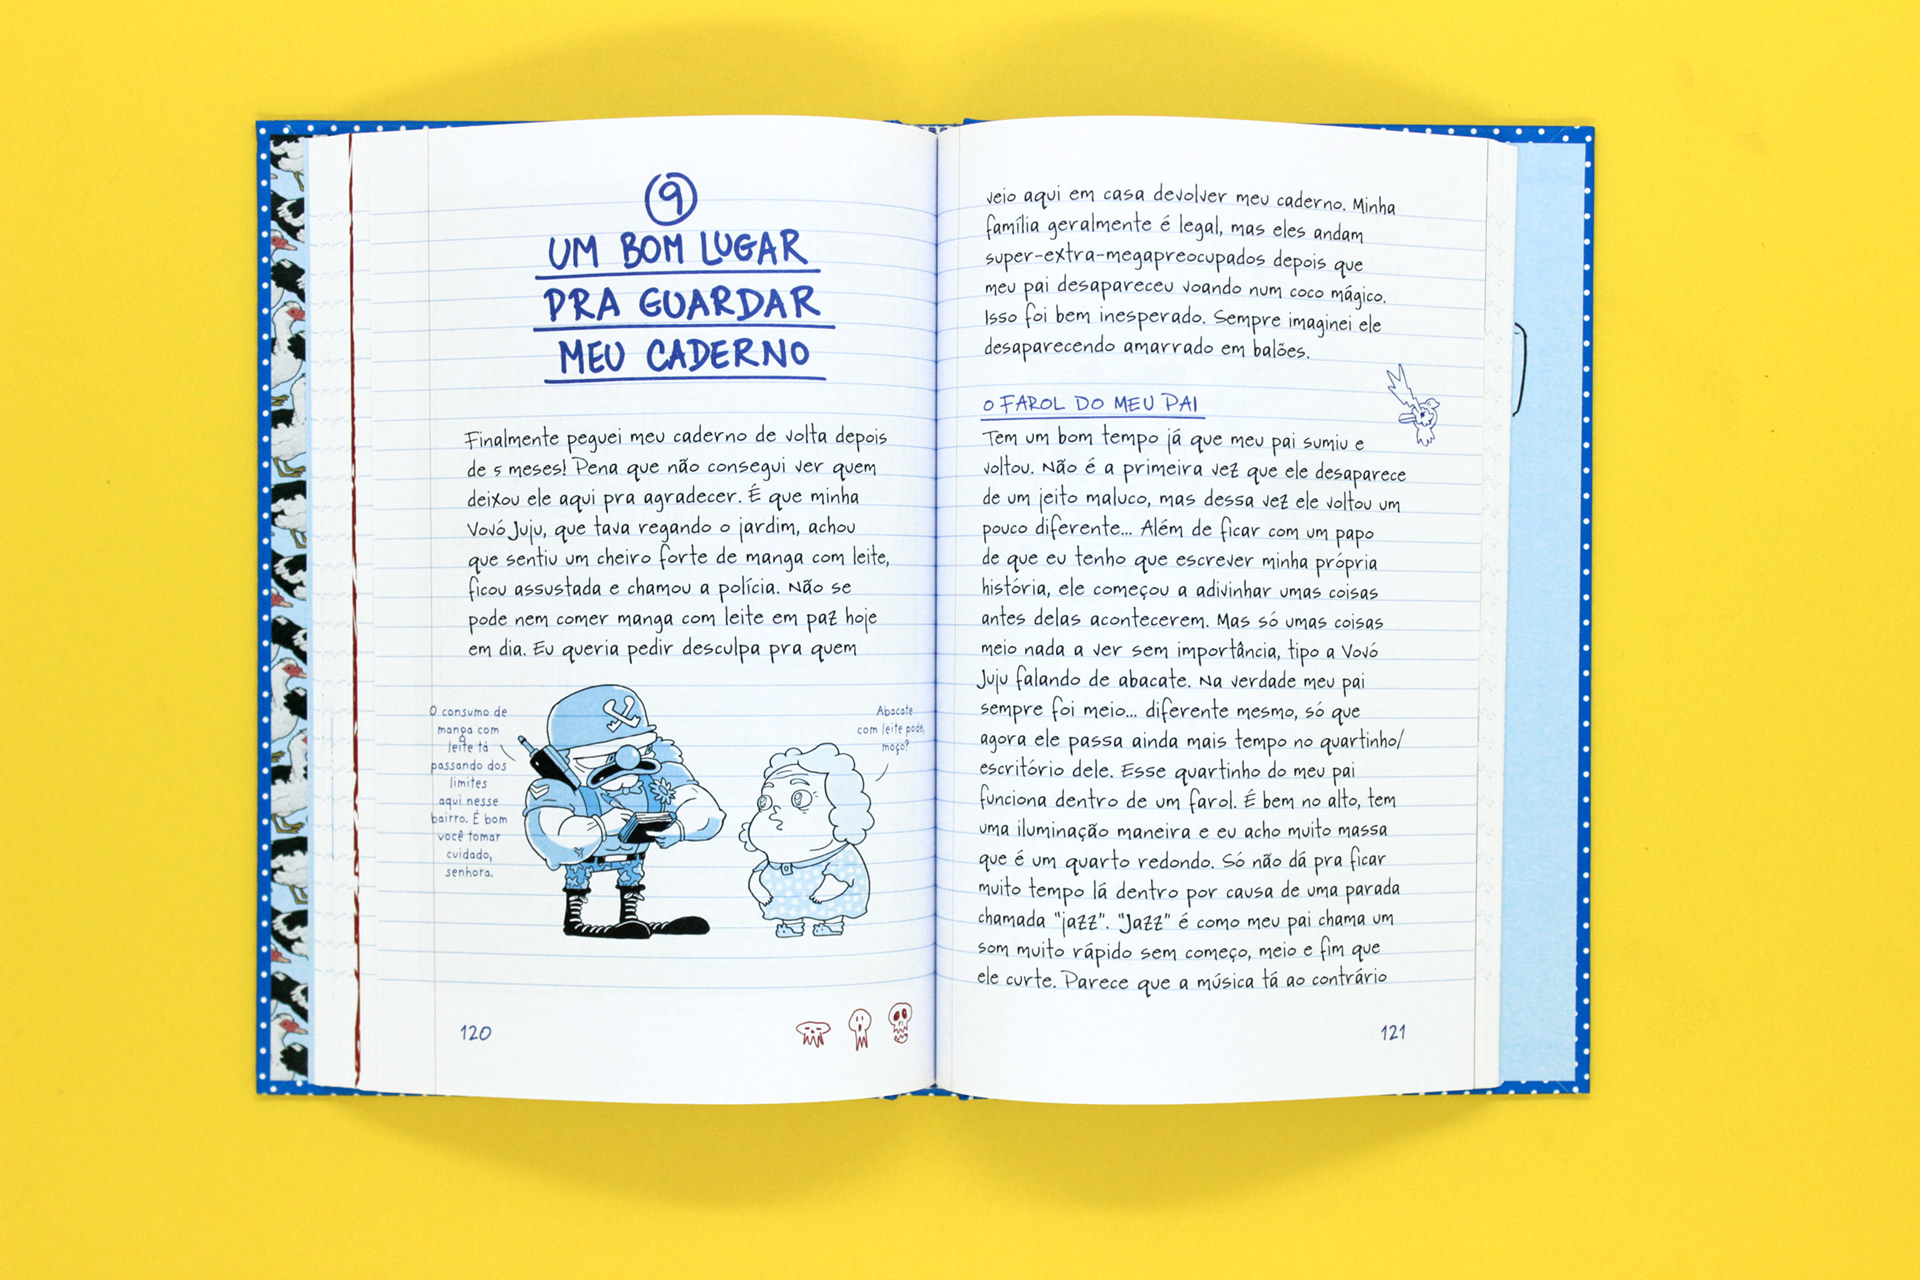 9
UM BOM LUGAR
PRA GUARDAR
MEU CADERNO
Finalmente peguei meu caderno de volta depois
de 5 meses! Pena que não consegui ver quem
deixou ele aqui pra agradecer. É que minha
Vovó Juju, que tava regando o jardim, achou
que sentiu um cheiro forte de manga com leite,
ficou assustada e chamou a polícia. Não se
pode nem comer manga com leite em paz hoje
em dia. Eu queria pedir desculpa pra quem
O consumo de
manga com
leite tá
passando dos
limites
aqui nesse
bairro. É bom
você tomar
cuidado,
senhora.
Abacate
com leite pode,
moço?
120
veio aqui em casa devolver meu caderno. Minha
família geralmente é legal, mas eles andam
super-extra-megapreocupados depois que
meu pai desapareceu voando num coco mágico.
Isso foi bem inesperado. Sempre imaginei ele
desaparecendo amarrado em balões.
O FAROL DO MEU PAI
Tem um bom tempo já que meu pai sumiu e
voltou. Não é a primeira vez que ele desaparece
de um jeito maluco, mas dessa vez ele voltou um
pouco diferente... Além de ficar com um papo
de que eu tenho que escrever minha própria
história, ele começou a adivinhar umas coisas
antes delas acontecerem. Mas só umas coisas
meio nada a ver sem importância, tipo a Vovó
Juju falando de abacate. Na verdade meu pai
sempre foi meio... diferente mesmo, só que
agora ele passa ainda mais tempo no quartinho/
escritório dele. Esse quartinho do meu pai
funciona dentro de um farol. É bem no alto, tem
uma iluminação maneira e eu acho muito massa
que é um quarto redondo. Só não dá pra ficar
muito tempo lá dentro por causa de uma parada
chamada "jazz". "Jazz" é como meu pai chama um
som muito rápido sem começo, meio e fim que
ele curte. Parece que a música tá ao contrário
121